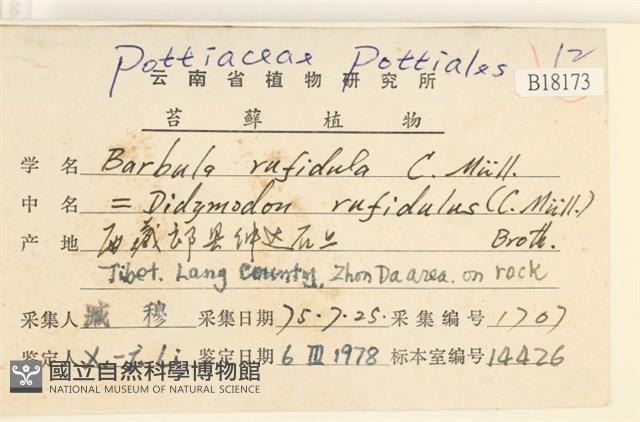 Pottiaceae Pottiales 12
云南省植物研究所
B18173
苔藓植物
学名 Barbula rufidula C. Müll.
中名 = Didymodon rufidulus (C. Müll.)
产地 西藏郎县仲达石上 Broth.
Tibet. Lang County, Zhon Da area. on rock
采集人 臧穆 采集日期 75.7.25. 采集编号 1707
鉴定人 X-J. Li 鉴定日期 6 III 1978 标本室编号 14426
國立自然科學博物館
NATIONAL MUSEUM OF NATURAL SCIENCE